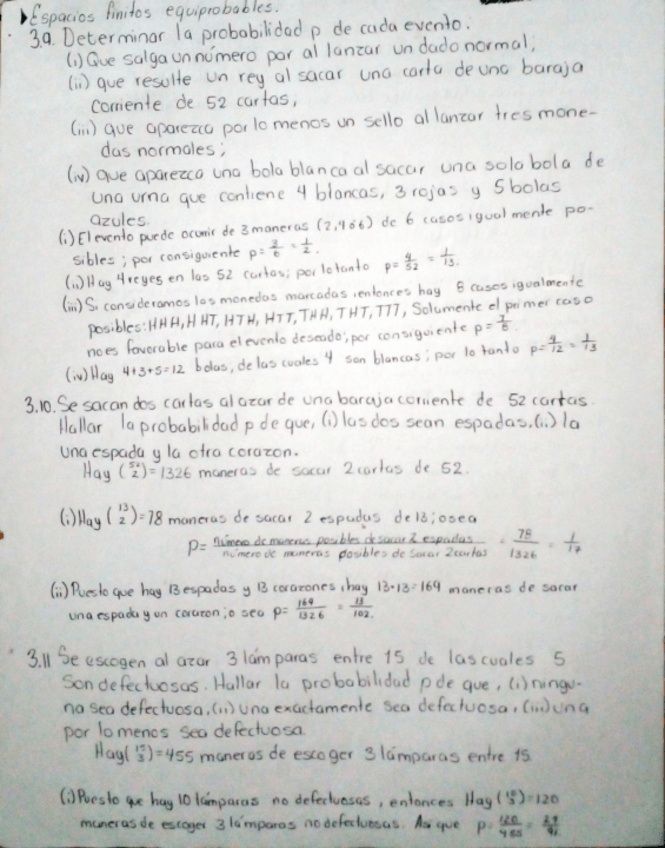 Espacios finitos equiprobables.
3.9. Determinar la probabilidad p de cada evento:
(i) Que salga un número par al lanzar un dado normal;
(ii) que resulte un rey al sacar una carta de una baraja
corriente de 52 cartas,
(iii) que aparezca por lo menos un sello al lanzar tres mone-
das normales;
(iv) que aparezca una bola blanca al sacar una sola bola de
una urna que contiene 4 blancas, 3 rojas y 5 bolas
azules.
(i) El evento puede ocurrir de 3 maneras (2,4 ó 6) de 6 casos igualmente po-
sibles; por consiguiente p = 3/6 = 1/2.
(ii) Hay 4 reyes en las 52 cartas; por lo tanto p = 4/52 = 1/13.
(iii) Si consideramos las monedas marcadas, entonces hay 8 casos igualmente
posibles: HHH, HHT, HTH, HTT, THH, THT, TTT, Solamente el primer caso
no es favorable para el evento deseado; por consiguiente p = 7/8.
(iv) Hay 4+3+5=12 bolas, de las cuales 4 son blancas; por lo tanto p = 4/12 = 1/13
3.10. Se sacan dos cartas al azar de una baraja corriente de 52 cartas.
Hallar la probabilidad p de que, (i) las dos sean espadas. (ii) la
una espada y la otra corazon.
Hay (52 2) = 1326 maneras de sacar 2 cartas de 52.
(i) Hay (13 2) = 78 maneras de sacar 2 espadas de 13; o sea
p = número de maneras posibles de sacar 2 espadas / número de maneras posibles de sacar 2 cartas = 78/1326 = 1/17
(ii) Puesto que hay 13 espadas y 13 corazones, hay 13·13=169 maneras de sacar
una espada y un corazon; o sea p = 169/1326 = 13/102.
3.11 Se escogen al azar 3 lámparas entre 15 de las cuales 5
Son defectuosas. Hallar la probabilidad p de que, (i) ningu-
na sea defectuosa, (ii) una exactamente sea defectuosa, (iii) una
por lo menos sea defectuosa.
Hay (15 3) = 455 maneras de escoger 3 lámparas entre 15
(i) Puesto que hay 10 lámparas no defectuosas, entonces Hay (10 3) = 120
maneras de escoger 3 lámparas no defectuosas. Asi que p = 120/455 = 24/91